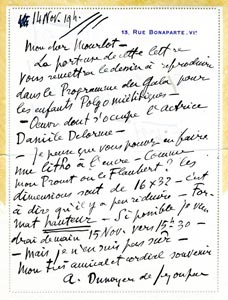 14 Nov. 194.
13, RUE BONAPARTE. VIᵉ
Mon cher Mourlot -
La porteuse de cette lettre
vous remettra le dessin à reproduire
dans le Programme du Gala pour
les enfants Poliomiélitiques -
- Oeuvre dont s'occupe l'actrice
Danièle Delorme -
- Je pense que vous pouvez en faire
une litho à l'encre - Comme
mon Proust ou le Flaubert? Les
dimensions sont de 16 x 32 - c'est
à dire qu'il y a peu réduire - For-
mat hauteur - Si possible je vien
drai demain 15 Nov. vers 15h30 -
- Mais je n'en suis pas sûr -
Mon très amical et cordial souvenir
A. Dunoyer de Segonzac